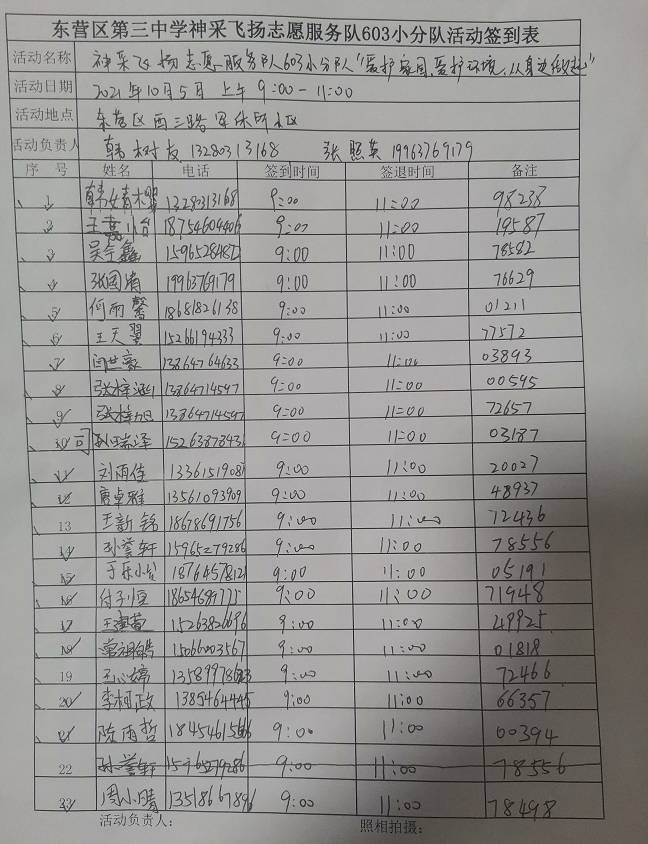 东营区第三中学神采飞扬志愿服务队603小分队活动签到表
活动名称 神采飞扬志愿服务队603小分队"爱护家园,爱护环境,从身边做起"
活动日期 2021年10月5日 上午 9:00-11:00
活动地点 东营区西三路军休所小区
活动负责人 韩树友 13280313168 张照英 19963769179
序 号 姓名 电话 签到时间 签退时间 备注
1 9:00 11:00 98238
2 18754604406 9:00 11:00 19587
3 9:00 11:00 78582
4 张国清 19963769179 9:00 11:00 76629
5 何雨馨 18681826138 9:00 11:00 01211
6 王天翼 15266194333 9:00 11:00 77572
7 闫世豪 13864764633 9:00 11:00 03893
8 张梓涵 13864714597 9:00 11:00 00595
9 张梓旭 13864714597 9:00 11:00 72657
10 孙瑞泽 15263878931 9:00 11:00 03187
11 刘雨佳 9:00 11:00 20027
12 唐卓雅 13561093909 9:00 11:00 48937
13 王新铭 18678691756 9:00 11:00 72436
14 孙誉轩 15965279286 9:00 11:00 78556
15 于乐 9:00 11:00 05191
16 付子恒 9:00 11:00 71948
17 9:00 11:00 49925
18 常祖皓 15066003567 9:00 11:00 01818
19 王心婷 9:00 11:00 72466
20 李柯政 1385464445 9:00 11:00 66357
21 陈雨哲 9:00 11:00 00394
22 孙誉轩 15965279286 9:00 11:00 78556
23 周小晴 13518667896 9:00 11:00 78498
活动负责人: 照相拍摄: